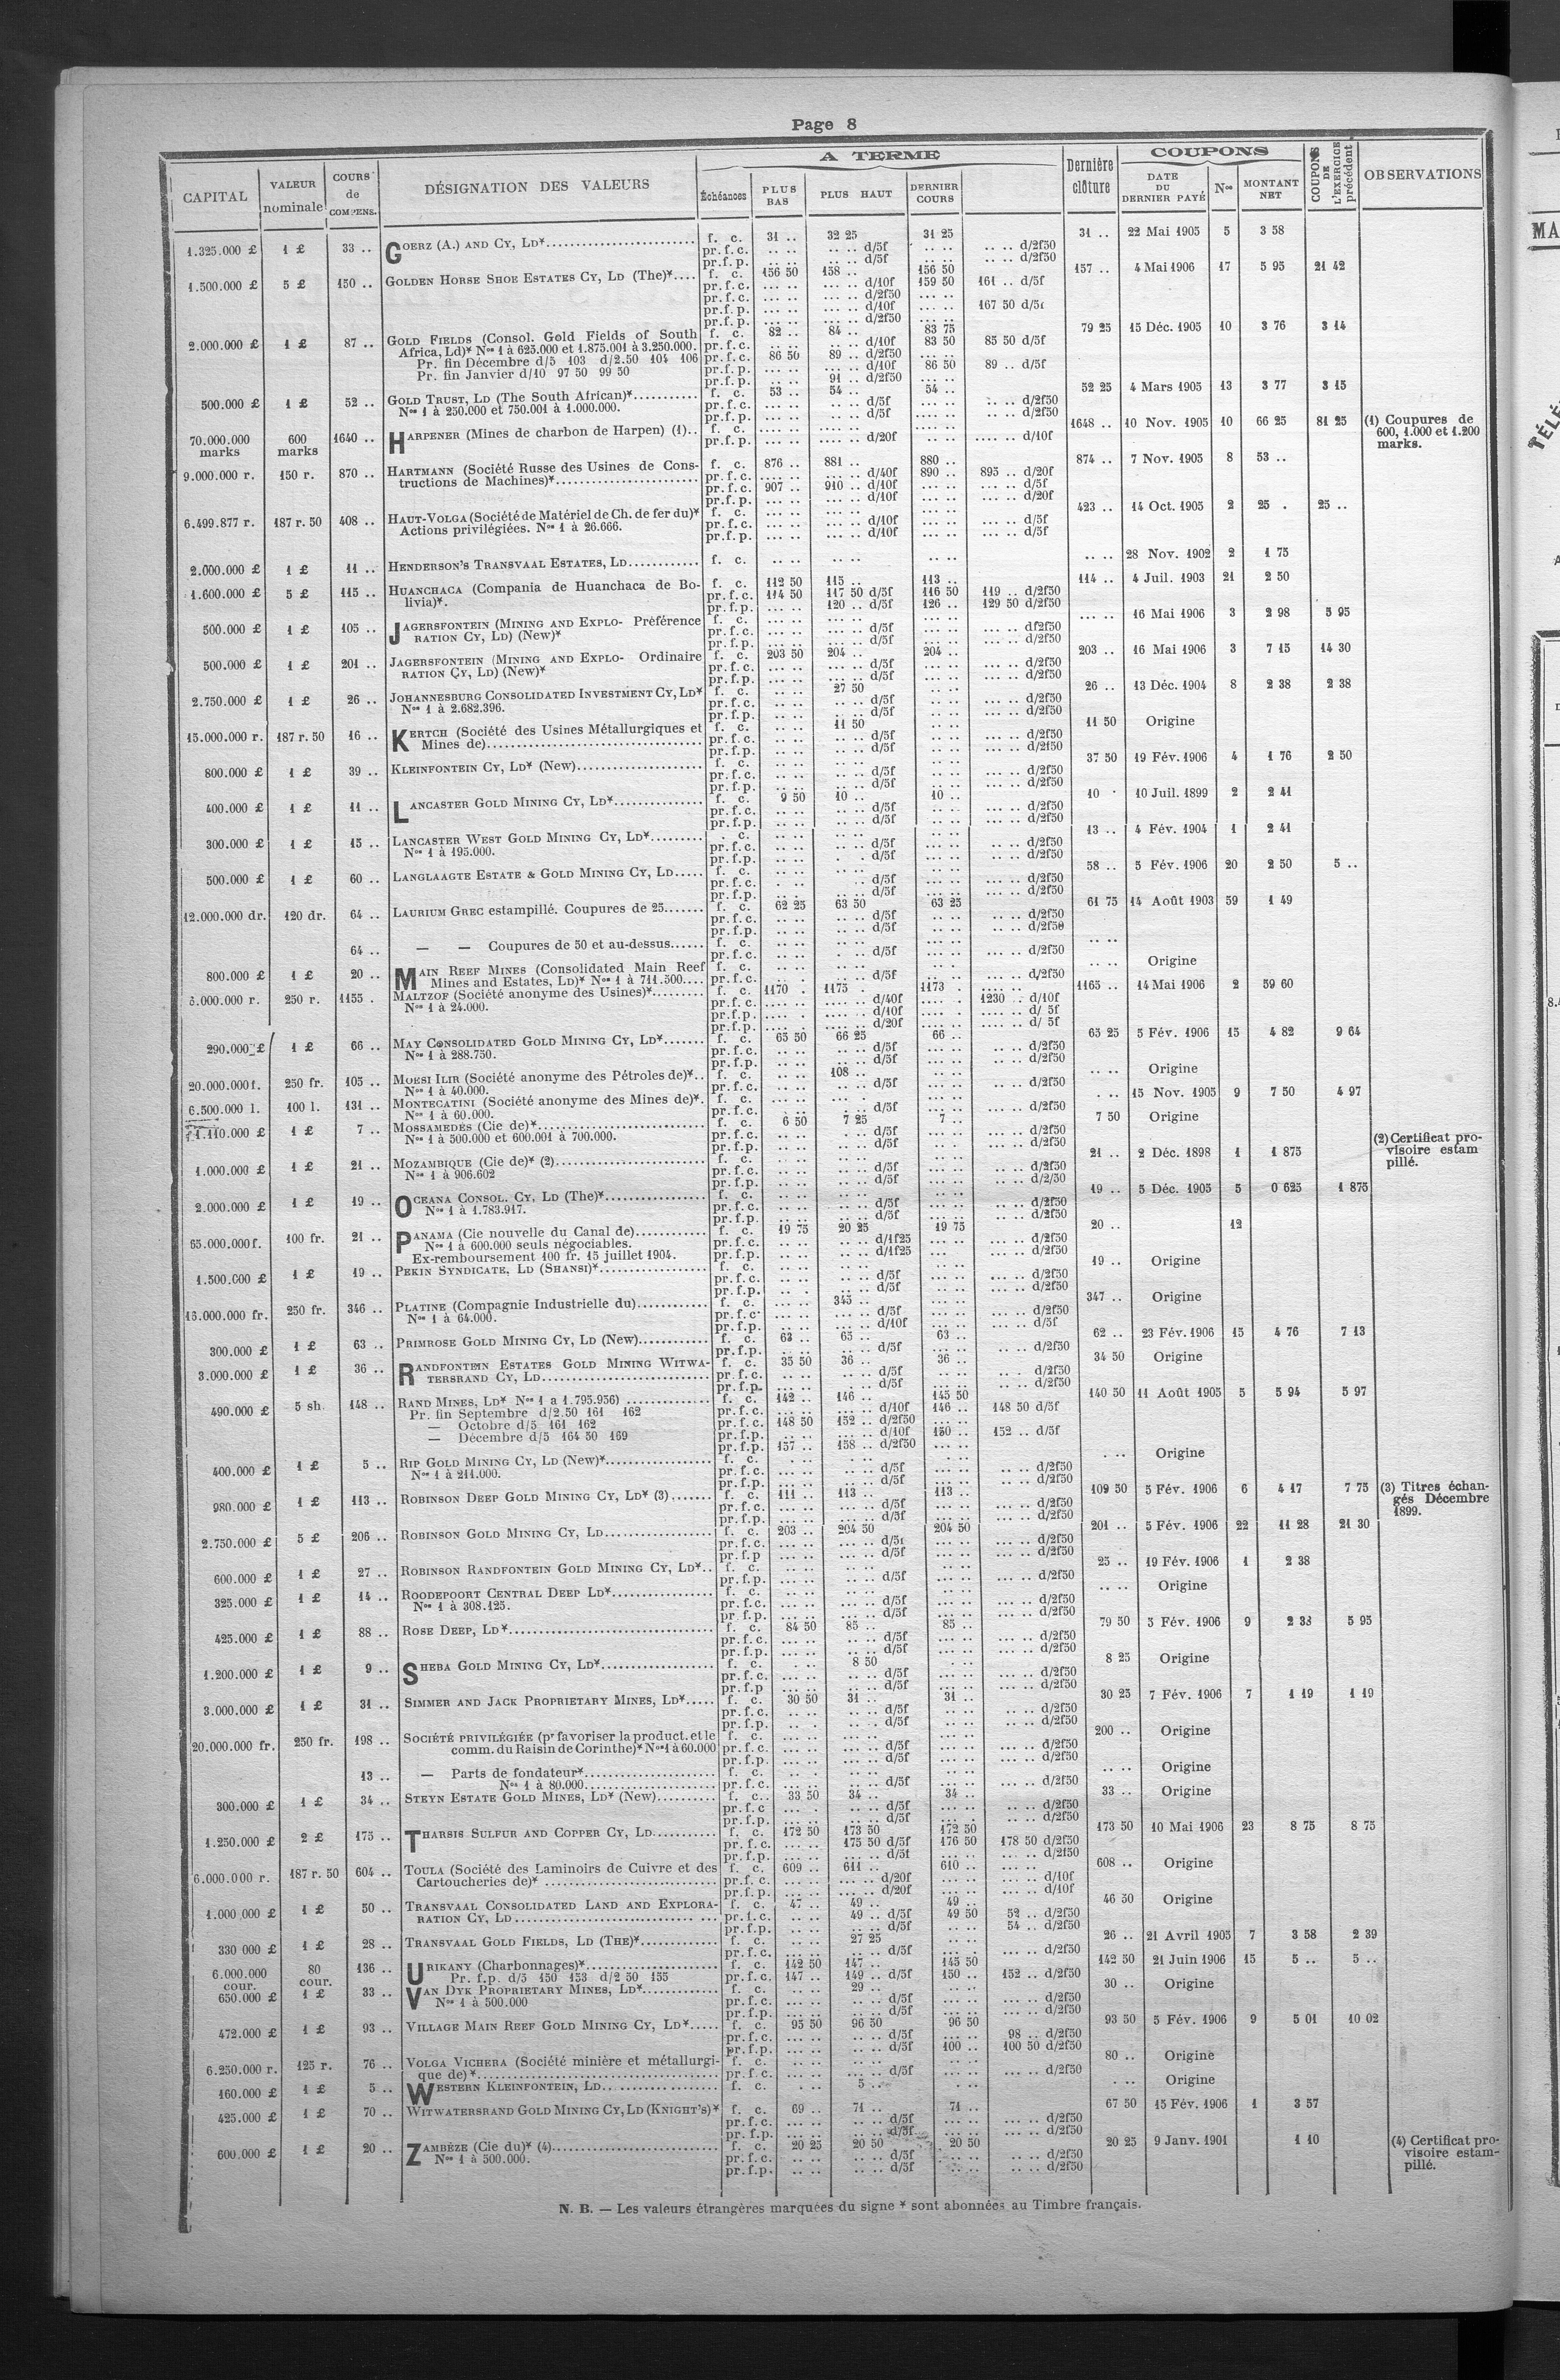 Page 8
CAPITAL | VALEUR nominale | COURS de COMPENS. | DÉSIGNATION DES VALEURS | A TERME | Dernière clôture | COUPONS | COUPONS DE L'EXERCICE précédent | OBSERVATIONS
Échéances | PLUS BAS | PLUS HAUT | DERNIER COURS | DATE DU DERNIER PAYÉ | Nos | MONTANT NET
1.325.000 £ 1 £ 33 .. GOERZ (A.) AND CY, LD* f. c. 31 .. 32 25 31 25 31 .. 22 Mai 1905 5 3 58
pr.f.c. .. .. .. .. d/5f .. .. .. .. d/2f50
pr.f.p. .. .. .. .. d/5f .. .. .. .. d/2f50
1.500.000 £ 5 £ 150 .. GOLDEN HORSE SHOE ESTATES CY, LD (The)* f. c. 156 50 158 .. 156 50 157 .. 4 Mai 1906 17 5 95 21 42
pr.f.c. ... .. ... .. d/10f 159 50 161 .. d/5f
pr.f.c. ... .. ... .. d/2f50 ... ..
pr.f.p. ... .. ... .. d/10f ... .. 167 50 d/5f
pr.f.p. ... .. ... .. d/2f50 ... ..
2.000.000 £ 1 £ 87 .. GOLD FIELDS (Consol. Gold Fields of South f. c. 82 .. 84 .. 83 75 79 25 15 Déc. 1905 10 3 76 3 14
Africa, Ld)* Nos 1 à 625.000 et 1.875.001 à 3.250.000. pr.f.c. .. .. .. .. d/10f 83 50 85 50 d/5f
Pr. fin Décembre d/5 103 d/2.50 104 106 pr.f.c. 86 50 89 .. d/2f50 ... ..
Pr. fin Janvier d/10 97 50 99 50 pr.f.p. ... .. ... .. d/10f 86 50 89 .. d/5f
pr.f.p. .. .. 91 .. d/2f50 ... ..
500.000 £ 1 £ 52 .. GOLD TRUST, LD (The South African)* f. c. 53 .. 54 .. 54 .. 52 25 4 Mars 1905 13 3 77 3 15
Nos 1 à 250.000 et 750.001 à 1.000.000. pr.f.c. ... .. .. .. d/5f ... .. .. .. d/2f50
pr.f.p. ... .. .. .. d/5f ... .. .. .. d/2f50
70.000.000 marks 600 marks 1640 .. HARPENER (Mines de charbon de Harpen) (1).. f. c. 1648 .. 10 Nov. 1905 10 66 25 81 25 (1) Coupures de
600, 1.000 et 1.200
marks.
pr.f.p. ... .. .... .. d/20f .. .. .... .. d/10f
9.000.000 r. 150 r. 870 .. HARTMANN (Société Russe des Usines de Cons- f. c. 876 .. 881 .. 880 .. 874 .. 7 Nov. 1905 8 53 ..
tructions de Machines)* pr.f.c. .... .. ... .. d/40f 890 .. 895 .. d/20f
pr.f.c. 907 .. 910 .. d/10f ... .. ... .. d/5f
pr.f.p. ... .. ... .. d/10f ... .. ... .. d/20f
6.499.877 r. 187 r. 50 408 .. HAUT-VOLGA (Société de Matériel de Ch. de fer du)* f. c. 423 .. 14 Oct. 1905 2 25 . 25 ..
Actions privilégiées. Nos 1 à 26.666. pr.f.c. ... .. ... .. d/10f ... .. ... .. d/5f
pr.f.p. ... .. ... .. d/10f ... .. ... .. d/5f
2.000.000 £ 1 £ 11 .. HENDERSON'S TRANSVAAL ESTATES, LD f. c. .. .. .. .. .. .. .. .. 28 Nov. 1902 2 1 75
1.600.000 £ 5 £ 115 .. HUANCHACA (Compania de Huanchaca de Bo- f. c. 112 50 115 .. 113 .. 114 .. 4 Juil. 1903 21 2 50
livia)*. pr.f.c. 114 50 117 50 d/5f 116 50 119 .. d/2f50
pr.f.p. ... .. 120 .. d/5f 126 .. 129 50 d/2f50
500.000 £ 1 £ 105 .. JAGERSFONTEIN (MINING AND EXPLO- Préférence f. c. ... .. 16 Mai 1906 3 2 98 5 95
RATION CY, LD) (New)* pr.f.c. ... .. ... .. d/5f ... .. ... .. df2f50
pr.f.p. ... .. ... .. d/5f ... .. ... .. d/2f50
500.000 £ 1 £ 201 .. JAGERSFONTEIN (MINING AND EXPLO- Ordinaire f. c. 203 50 204 .. 204 .. 203 .. 16 Mai 1906 3 7 15 14 30
RATION CY, LD) (New)* pr.f.c. ... .. ... .. d/5f ... .. ... .. d/2f50
pr.f.p. ... .. ... .. d/5f ... .. ... .. d/2f50
2.750.000 £ 1 £ 26 .. JOHANNESBURG CONSOLIDATED INVESTMENT CY, LD* f. c. .. .. 27 50 .. .. 26 .. 13 Déc. 1904 8 2 38 2 38
Nos 1 à 2.682.396. pr.f.c. .. .. .. .. d/5f ... .. ... .. d/2f50
pr.f.p. .. .. .. .. d/5f ... .. ... .. d/2f50
15.000.000 r. 187 r. 50 16 .. KERTCH (Société des Usines Métallurgiques et f. c. .. .. 11 50 .. .. 11 50 Origine
Mines de) pr.f.c. .. .. .. .. d/5f .. .. ... .. d/2f50
pr.f.p. .. .. .. .. d/5f .. .. ... .. d/2f50
800.000 £ 1 £ 39 .. KLEINFONTEIN CY, LD* (New) f. c. 37 50 19 Fév. 1906 4 1 76 2 50
pr.f.c. .. .. .. .. d/5f .. .. ... .. d/2f50
pr.f.p. .. .. .. .. d/5f .. .. ... .. d/2f50
400.000 £ 1 £ 11 .. LANCASTER GOLD MINING CY, LD* f. c. 9 50 10 .. 10 .. 10 10 Juil. 1899 2 2 41
pr.f.c. .. .. .. .. d/5f .. .. ... .. d/2f50
pr.f.p. .. .. .. .. d/5f .. .. ... .. d/2f50
300.000 £ 1 £ 15 .. LANCASTER WEST GOLD MINING CY, LD* . c. 13 .. 4 Fév. 1904 1 2 41
Nos 1 à 195.000. pr.f.c. .. .. .. .. d/5f ... .. ... .. d/2f50
pr.f.p. .. .. . . d/5f ... .. ... .. d/2f50
500.000 £ 1 £ 60 .. LANGLAAGTE ESTATE & GOLD MINING CY, LD f. c. 58 .. 5 Fév. 1906 20 2 50 5 ..
pr.f.c. . .. .. d/5f ... .. ... .. d/2f50
pr.f.p. .. .. .. .. d/5f ... .. ... .. d/2f50
12.000.000 dr. 120 dr. 64 .. LAURIUM GREC estampillé. Coupures de 25 f. c. 62 25 63 50 63 25 61 75 14 Août 1903 59 1 49
pr.f.c. .. .. .. .. d/5f .. .. .. .. d/2f50
pr.f.p. .. .. .. .. d/5f .. .. .. .. d/2f50
64 .. — — Coupures de 50 et au-dessus f. c. .. ..
pr.f.c. .. .. . .. d/5f ... .. ... .. d/2f50
800.000 £ 1 £ 20 .. MAIN REEF MINES (Consolidated Main Reef f. c. .. .. Origine
Mines and Estates, LD)* Nos 1 à 711.500 pr.f.c. .. .. .. .. d/5f ... .. ... .. d/2f50
6.000.000 r. 250 r. 1155 . MALTZOF (Société anonyme des Usines)* f. c. 1170 . 1175 . 1173 . 1165 .. 14 Mai 1906 2 59 60
Nos 1 à 24.000. pr.f.c. .... . .... .. d/40f .... . 1230 .. d/10f
pr.f.p. .... . .... .. d/10f .... .. .... .. d/ 5f
pr.f.p. .... . .... .. d/20f .... .. .... .. d/ 5f
290.000 £ 1 £ 66 .. MAY CONSOLIDATED GOLD MINING CY, LD* f. c. 65 50 66 25 66 .. 65 25 5 Fév. 1906 15 4 82 9 64
Nos 1 à 288.750. pr.f.c. .. .. .. .. d/5f ... .. .. .. d/2f50
pr.f.p. .. .. .. .. d/5f ... .. .. .. d/2f50
20.000.000 f. 250 fr. 105 .. MOESI ILIR (Société anonyme des Pétroles de)* f. c. 108 .. .. .. Origine
Nos 1 à 40.000. pr.f.c. .. .. .. .. d/5f ... .. .. .. d/2f50
6.500.000 l. 100 l. 131 .. MONTECATINI (Société anonyme des Mines de)* f. c. . .. 15 Nov. 1905 9 7 50 4 97
Nos 1 à 60.000. pr.f.c. ... .. .. .. d/5f ... .. ... .. d/2f50
1.110.000 £ 1 £ 7 .. MOSSAMEDÈS (Cie de)* f. c. 6 50 7 25 7 .. 7 50 Origine
Nos 1 à 500.000 et 600.001 à 700.000. pr.f.c. .. .. . .. d/5f ... .. ... .. d/2f50
pr.f.p. .. .. .. .. d/5f ... .. ... .. d/2f50
1.000.000 £ 1 £ 21 .. MOZAMBIQUE (Cie de)* (2) f. c. 21 .. 2 Déc. 1898 1 1 875 (2) Certificat pro-
visoire estam
pillé.
Nos 1 à 906.602 pr.f.c. .. .. .. .. d/5f ... .. ... .. d/2f50
pr.f.p. .. .. .. .. d/5f ... .. ... .. d/2/50
2.000.000 £ 1 £ 19 .. OCEANA CONSOL. CY, LD (The)* f. c. 19 .. 5 Déc. 1905 5 0 625 1 875
Nos 1 à 1.783.917. pr.f.c. .. .. .. .. d/5f ... .. .. .. d/2f50
pr.f.p. .. .. .. .. d/5f ... .. .. .. d/2f50
65.000.000 f. 100 fr. 21 .. PANAMA (Cie nouvelle du Canal de) f. c. 19 75 20 25 19 75 20 .. 12
Nos 1 à 600.000 seuls négociables. pr.f.c. .. .. .. .. d/1f25 ... .. ... .. d/2f50
Ex-remboursement 100 fr. 15 juillet 1904. pr.f.p. .. .. .. .. d/1f25 ... ... .. d/2f50
1.500.000 £ 1 £ 19 .. PEKIN SYNDICATE, LD (SHANSI)* f. c. 19 .. Origine
pr.f.c. .. .. .. .. d/5f ... .. ... .. d/2f50
pr.f.p. .. . .. .. d/5f ... .. ... .. d/2f50
16.000.000 fr. 250 fr. 346 .. PLATINE (Compagnie Industrielle du) f. c. ... .. 345 .. ... .. 347 .. Origine
Nos 1 à 64.000. pr.f.c ... .. ... .. d/5f ... .. ... .. d/2f50
pr.f.p. ... .. ... .. d/10f ... .. ... .. d/5f
300.000 £ 1 £ 63 .. PRIMROSE GOLD MINING CY, LD (New) f. c. 63 .. 65 .. 63 .. 62 .. 23 Fév. 1906 15 4 76 7 13
pr.f.p. .. .. .. .. d/5f ... .. .. .. d/2f50
3.000.000 £ 1 £ 36 .. RANDFONTEIN ESTATES GOLD MINING WITWA- f. c. 35 50 36 .. 36 .. 34 50 Origine
TERSRAND CY, LD pr.f.c. .. .. .. .. d/5f ... .. .. . d/2f50
pr.f.p. ... .. . .. d/5f ... .. .. . d/2f50
490.000 £ 5 sh. 148 .. RAND MINES, LD* Nos 1 a 1.795.956) f. c. 142 .. 146 .. 145 50 140 50 11 Août 1905 5 5 94 5 97
Pr. fin Septembre d/2.50 161 162 pr.f.c. ... .. ... .. d/10f 146 .. 148 50 d/5f
— Octobre d/5 161 162 pr.f.c. 148 50 152 .. d/2f50 ... ..
— Décembre d/5 164 50 169 pr.f.p. .. .. ... .. d/10f 150 .. 152 .. d/5f
pr.f.p. 157 .. 158 .. d/2f50 ... ..
400.000 £ 1 £ 5 .. RIP GOLD MINING CY, LD (New)* f. c. . .. Origine
Nos 1 à 211.000. pr.f.c. ... .. .. .. d/5f ... .. .. .. d/2f50
pr.f.p. ... .. .. .. d/5f ... .. .. .. d/2f50
980.000 £ 1 £ 113 .. ROBINSON DEEP GOLD MINING CY, LD* (3) f. c. 111 .. 113 .. 113 .. 109 50 5 Fév. 1906 6 4 17 7 75 (3) Titres échan-
gés Décembre
1899.
pr.f.c. ... .. ... .. d/5f ... .. ... .. d/2f50
pr.f.p. ... .. ... .. d/5f ... .. ... .. d/2f50
2.750.000 £ 5 £ 206 .. ROBINSON GOLD MINING CY, LD f. c. 203 .. 204 50 204 50 201 .. 5 Fév. 1906 22 11 28 21 30
pr.f.c. ... .. ... .. d/5f ... .. ... .. d/2f50
pr.f.p ... .. ... .. d/5f ... .. ... .. d/2f50
600.000 £ 1 £ 27 .. ROBINSON RANDFONTEIN GOLD MINING CY, LD* f. c. 25 .. 19 Fév. 1906 1 2 38
pr.f.p. ... .. .. .. d/5f ... .. ... .. d/2f50
325.000 £ 1 £ 14 .. ROODEPOORT CENTRAL DEEP LD* f. c. .. .. Origine
Nos 1 à 308.125. pr.f.c. ... .. .. .. d/5f ... .. ... .. d/2f50
pr.f.p. ... .. .. .. d/5f ... .. ... .. d/2f50
425.000 £ 1 £ 88 .. ROSE DEEP, LD* f. c. 84 50 85 .. 85 .. 79 50 5 Fév. 1906 9 2 38 5 95
pr.f.c. ... .. .. .. d/5f ... .. ... .. d/2f50
pr.f.p. ... .. .. .. d/5f ... .. ... .. d/2f50
1.200.000 £ 1 £ 9 .. SHEBA GOLD MINING CY, LD* f. c. . .. 8 50 . .. 8 25 Origine
pr.f.c. ... .. .. .. d/5f ... .. ... .. d/2f50
pr.f.p ... .. .. .. d/5f ... .. ... .. d/2f50
3.000.000 £ 1 £ 31 .. SIMMER AND JACK PROPRIETARY MINES, LD* f. c. 30 50 31 .. 31 .. 30 25 7 Fév. 1906 7 1 19 1 19
pr.f.c. .. .. .. .. d/5f ... .. .. .. d/2f50
pr.f.p. .. . .. .. d/5f ... .. .. .. d/2f50
20.000.000 fr. 250 fr. 198 .. SOCIÉTÉ PRIVILÉGIÉE (pr favoriser la product. et le f. c. 200 .. Origine
comm. du Raisin de Corinthe)* Nos 1 à 60.000 pr.f.c. ... .. ... .. d/5f ... .. ... .. d/2f50
pr.f.p. ... .. ... .. d/5f ... .. ... .. d/2f50
13 .. — Parts de fondateur* f. c. .. .. Origine
Nos 1 à 80.000 pr.f.c. ... .. .. .. d/5f ... .. ... .. d/2f50
300.000 £ 1 £ 34 .. STEYN ESTATE GOLD MINES, LD* (New) f. c. 33 50 34 .. 34 .. 33 .. Origine
pr.f.c ... . .. .. d/5f ... .. .. .. d/2f50
pr.f.p. ... .. .. .. d/5f ... .. .. .. d/2f50
1.250.000 £ 2 £ 175 .. THARSIS SULFUR AND COPPER CY, LD f. c. 172 50 173 50 172 50 173 50 10 Mai 1906 23 8 75 8 75
pr.f.c. ... .. 175 50 d/5f 176 50 178 50 d/2f50
pr.f.p. ... .. ... .. d/5f ... .. ... .. d/2f50
6.000.000 r. 187 r. 50 604 .. TOULA (Société des Laminoirs de Cuivre et des f. c. 609 .. 611 .. 610 .. 608 .. Origine
Cartoucheries de)* pr.f.c. ... .. ... .. d/20f ... .. ... .. d/10f
pr.f.p. ... .. ... .. d/20f ... .. ... .. d/10f
1.000.000 £ 1 £ 50 .. TRANSVAAL CONSOLIDATED LAND AND EXPLORA- f. c. 47 .. 49 .. 49 .. 46 50 Origine
RATION CY, LD pr.f.c. .. .. 49 .. d/5f 49 50 52 .. d/2f50
pr.f.p. .. .. .. .. d/5f .. .. 54 .. d/2f50
330 000 £ 1 £ 28 .. TRANSVAAL GOLD FIELDS, LD (THE)* f. c. .. .. 27 25 .. .. 26 .. 21 Avril 1905 7 3 58 2 39
pr.f.c. ... .. .. .. d/5f ... . ... .. d/2f50
6.000.000 cour. 80 cour. 136 .. URIKANY (Charbonnages)* f. c. 142 50 147 .. 145 50 142 50 21 Juin 1906 15 5 .. 5 ..
Pr. f.p. d/5 150 153 d/2 50 155 pr.f.c. 147 .. 149 .. d/5f 150 .. 152 .. d/2f50
650.000 £ 1 £ 33 .. VAN DYK PROPRIETARY MINES, LD* f. c. .. .. 29 .. .. .. 30 .. Origine
Nos 1 à 500.000 pr.f.c. ... .. .. .. d/5f ... .. ... .. d/2f50
pr.f.p. ... .. .. .. d/5f ... .. ... .. d/2f50
472.000 £ 1 £ 93 .. VILLAGE MAIN REEF GOLD MINING CY, LD* f. c. 95 50 96 50 96 50 93 50 5 Fév. 1906 9 5 01 10 02
pr.f.c. ... .. ... .. d/5f ... .. 98 .. d/2f50
pr.f.p. ... .. ... .. d/5f 100 .. 100 50 d/2f50
6.250.000 r. 125 r. 76 .. VOLGA VICHERA (Société minière et métallurgi- f. c. 80 .. Origine
que de)* pr.f.c. ... .. ... .. d/5f ... .. ... .. d/2f50
160.000 £ 1 £ 5 .. WESTERN KLEINFONTEIN, LD f. c. . .. 5 .. . .. . .. Origine
425.000 £ 1 £ 70 .. WITWATERSRAND GOLD MINING CY, LD (KNIGHT'S)* f. c. 69 .. 71 .. 71 .. 67 50 15 Fév. 1906 1 3 57
pr.f.c. ... .. .. .. d/5f ... .. ... .. d/2f50
pr.f.p. ... .. .. .. d/5f ... .. ... .. d/2f50
600.000 £ 1 £ 20 .. ZAMBÈZE (Cie du)* (4) f. c. 20 25 20 50 20 50 20 25 9 Janv. 1901 1 10 (4) Certificat pro-
visoire estam-
pillé.
Nos 1 à 500.000. pr.f.c. .. .. .. .. d/5f .. .. .. .. d/2f50
pr.f.p. .. .. .. .. d/5f .. .. .. .. d/2f50
N. B. — Les valeurs étrangères marquées du signe * sont abonnées au Timbre français.
MA
TÉLÉ